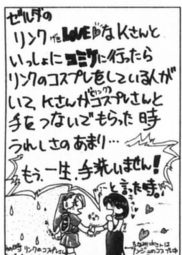 ゼルダの
リンクがLOVEなKさんと
いっしょにコミケに行ったら
リンクのコスプレをしている人が
いて、Kさんがコスプレさんと
手をつないでもらった時
うれしさのあまり…
もう、一生、手洗いません!
と言った時!
リンクのコスプレさん